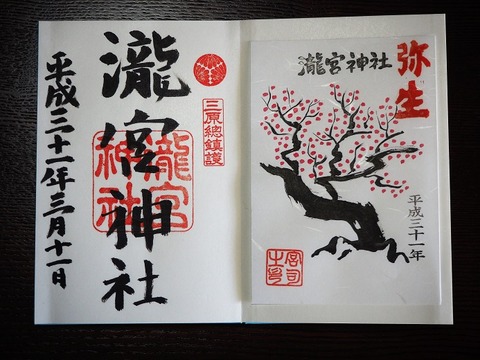 三原總鎮護
瀧宮神社
瀧宮神社
平成三十一年三月十一日
弥生
瀧宮神社
平成三十一年
宮司之印